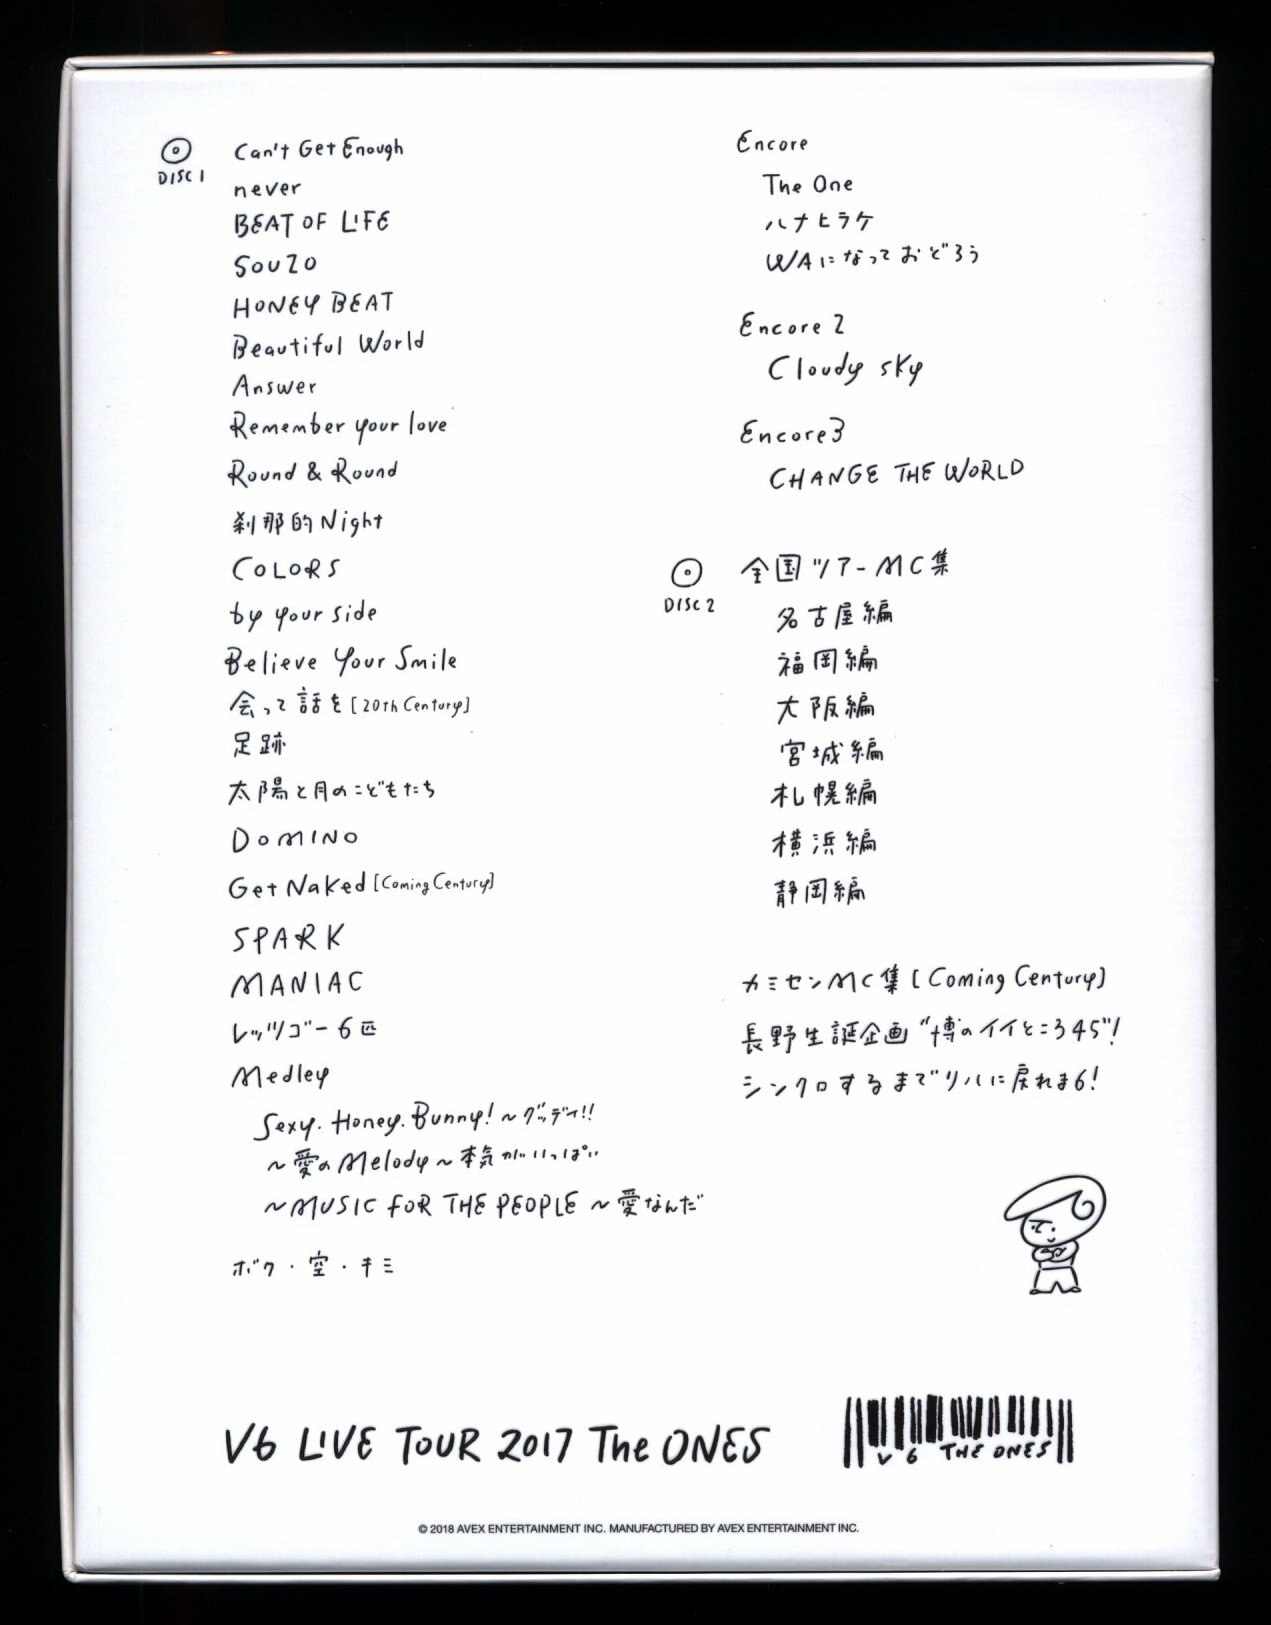 DISC 1
Can't Get Enough
never
BEAT OF LIFE
SOUZO
HONEY BEAT
Beautiful World
Answer
Remember your love
Round & Round
刹那的Night
COLORS
by your side
Believe Your Smile
会って話を [20th Century]
足跡
太陽と月のこどもたち
DOMINO
Get Naked [Coming Century]
SPARK
MANIAC
レッツゴー6匹
Medley
Sexy. Honey. Bunny! ~グッデイ!!
~愛のMelody~本気がいっぱい
~MUSIC FOR THE PEOPLE ~愛なんだ
ボク・空・キミ
Encore
The One
ハナヒラケ
WAになっておどろう
Encore 2
Cloudy sky
Encore3
CHANGE THE WORLD
DISC 2
全国ツアーMC集
名古屋編
福岡編
大阪編
宮城編
札幌編
横浜編
静岡編
カミセンMC集 [Coming Century]
長野生誕企画“博のイイところ45”!
シンクロするまでリハに戻れま6!
V6 LIVE TOUR 2017 The ONES
V6 THE ONES
© 2018 AVEX ENTERTAINMENT INC. MANUFACTURED BY AVEX ENTERTAINMENT INC.